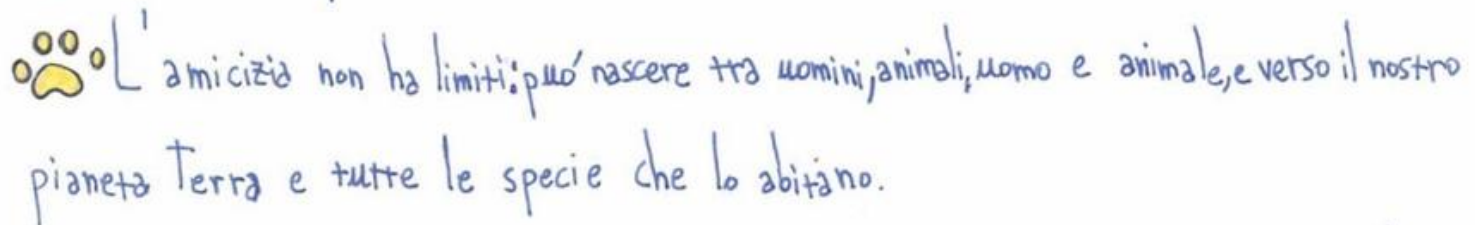 L'amicizia non ha limiti: puó nascere tra uomini, animali, uomo e animale, e verso il nostro
pianeta Terra e tutte le specie che lo abitano.